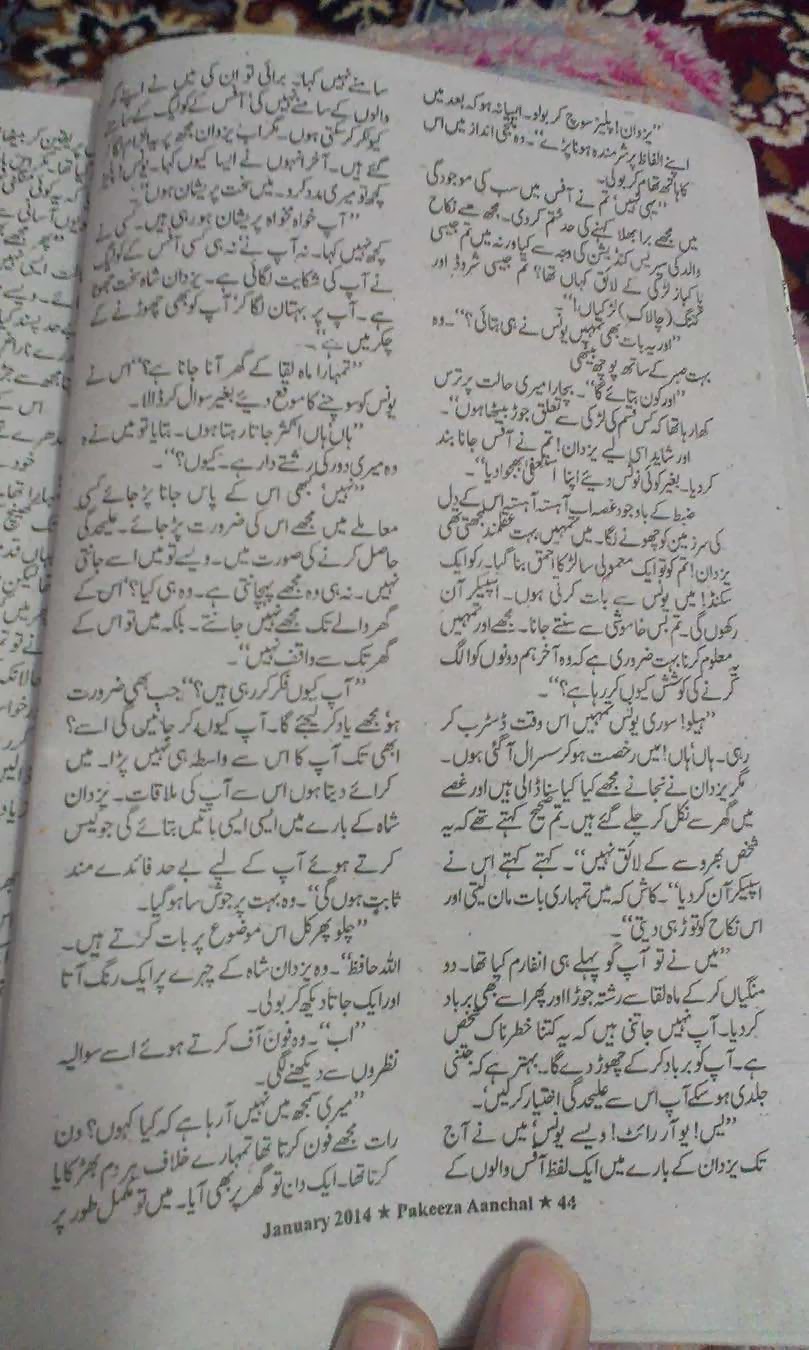 ”یزدان! پلیز سوچ کر بولو۔ ایسا نہ ہو کہ بعد میں
اپنے الفاظ پر شرمندہ ہونا پڑے“۔ وہ ملتجی انداز میں اس
کا ہاتھ تھام کر بولی۔
”یہی کہیں تم نے آفس میں سب کی موجودگی
میں مجھے برا بھلا کہنے کی حد ختم کر دی۔ مجھ سے نکاح
والد کی سیریس کنڈیشن کی وجہ سے کیا ورنہ میں تم جیسی
پاکباز لڑکی کے لائق کہاں تھا؟ تم جیسی شروڈ اور
کننگ (چالاک) لڑکیاں!“
”اور یہ بات بھی تمہیں یونس نے ہی بتائی؟“۔ وہ
بہت صبر کے ساتھ پوچھ بیٹھی
”اور کون بتائے گا“۔ بچارا میری حالت پر ترس
کھا رہا تھا کہ کس قسم کی لڑکی سے تعلق جوڑ بیٹھا ہوں“۔
اور شاید اسی لیے یزدان! تم نے آفس جانا بند
کر دیا۔ بغیر کوئی نوٹس دیئے اپنا استعفیٰ بھجوا دیا“۔
ضبط کے باوجود غصہ اب آہستہ آہستہ اس کے دل
کی سرزمین کو چھونے لگا۔ میں تمہیں بہت عقلمند سمجھتی تھی
یزدان! تم کو تو ایک معمولی سا لڑکا احمق بنا گیا۔ رکو ایک
سکنڈ! میں یونس سے بات کرتی ہوں۔ اسپیکر آن
رکھوں گی۔ تم بس خاموشی سے سنتے جانا۔ مجھے اور تمہیں
یہ معلوم کرنا بہت ضروری ہے کہ وہ آخر ہم دونوں کو الگ
کرنے کی کوشش کیوں کر رہا ہے؟“۔
”ہیلو! سوری یونس تمہیں اس وقت ڈسٹرب کر
رہی۔ ہاں ہاں! میں رخصت ہو کر سسرال آ گئی ہوں۔
مگر یزدان نے نجانے مجھے کیا کیا سنا ڈالی ہیں اور غصے
میں گھر سے نکل کر چلے گئے ہیں۔ تم صحیح کہتے تھے کہ یہ
شخص بھروسے کے لائق نہیں“۔ کہتے کہتے اس نے
اسپیکر آن کر دیا“۔ کاش کہ میں تمہاری بات مان لیتی اور
اس نکاح کو توڑ ہی دیتی“۔
”میں نے تو آپ کو پہلے ہی انفارم کیا تھا۔ دو
منگنیاں کر کے ماہ لقا سے رشتہ جوڑا اور پھر اسے بھی برباد
کر دیا۔ آپ نہیں جانتی ہیں کہ یہ کتنا خطرناک شخص
ہے۔ آپ کو برباد کر کے چھوڑ دے گا۔ بہتر ہے کہ جتنی
جلدی ہو سکے آپ اس سے علیحدگی اختیار کر لیں“۔
”یس! یو آر رائٹ! ویسے یونس میں نے آج
تک یزدان کے بارے میں ایک لفظ آفس والوں کے
سامنے نہیں کہا۔ برائی تو ان کی میں نے اپنے گھر
والوں کے سامنے نہیں کی آفس کے کولیگ کے سامنے
کیونکر کر سکتی ہوں۔ مگر اب یزدان مجھ پر یہ الزام لگا
گئے ہیں۔ آخر انہوں نے ایسا کیوں کہا۔ یونس! پلیز
کچھ تو میری مدد کرو۔ میں سخت پریشان ہوں“۔
”آپ خواہ مخواہ پریشان ہو رہی ہیں۔ کسی نے
کچھ نہیں کہا۔ نہ آپ نے نہ ہی کسی آفس کے کولیگ
نے آپ کی شکایت لگائی ہے۔ یزدان شاہ سخت جھوٹا
ہے۔ آپ پر بہتان لگا کر آپ کو بھی چھوڑنے کے
چکر میں ہے“۔
”تمہارا ماہ لقا کے گھر آنا جانا ہے؟“ اس نے
یونس کو سوچنے کا موقع دیئے بغیر سوال کر ڈالا۔
”ہاں ہاں اکثر جاتا رہتا ہوں۔ بتایا تو میں نے
وہ میری دور کی رشتے دار ہے۔ کیوں؟“۔
”نہیں کبھی اس کے پاس جانا پڑ جائے کسی
معاملے میں مجھے اس کی ضرورت پڑ جائے۔ علیحدگی
حاصل کرنے کی صورت میں۔ ویسے تو میں اسے جانتی
نہیں۔ نہ ہی وہ مجھے پہچانتی ہے۔ وہ ہی کیا؟ ان کے
گھر والے تک مجھے نہیں جانتے۔ بلکہ میں تو اس کے
گھر تک سے واقف نہیں“۔
”آپ کیوں فکر کر رہی ہیں؟“ جب بھی ضرورت
ہو مجھے یاد کر لیجئے گا۔ آپ کیوں کر جانیں گی اسے؟
ابھی تک آپ کا اس سے واسطہ ہی نہیں پڑا۔ میں
کرائے دیتا ہوں اس سے آپ کی ملاقات۔ یزدان
شاہ کے بارے میں ایسی ایسی باتیں بتائے گی جو کیس
کرتے ہوئے آپ کے لیے بے حد فائدے مند
ثابت ہوں گی“۔ وہ بہت پر جوش سا ہو گیا۔
”چلو پھر کل اس موضوع پر بات کرتے ہیں۔
اللہ حافظ“۔ وہ یزدان شاہ کے چہرے پر ایک رنگ آتا
اور ایک جاتا دیکھ کر بولی۔
”اب“۔ وہ فون آف کرتے ہوئے اسے سوالیہ
نظروں سے دیکھنے لگی۔
”میری سمجھ میں نہیں آ رہا ہے کہ کیا کہوں؟ دن
رات مجھے فون کرتا تھا تمہارے خلاف ہر دم بھڑکایا
کرتا تھا۔ ایک دن تو گھر پر بھی آیا۔ میں تو مکمل طور پر
January 2014 ★ Pakeeza Aanchal ★ 44